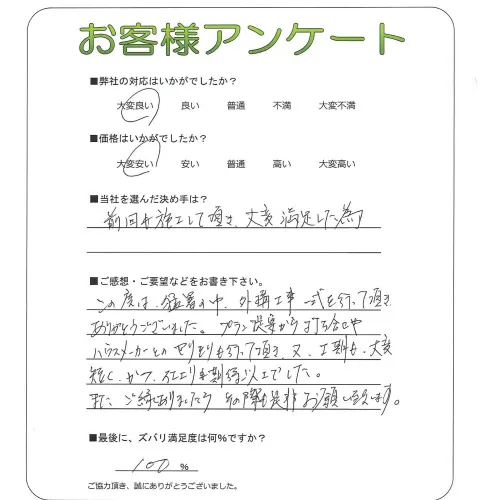 お客様アンケート
■弊社の対応はいかがでしたか？
大変良い 良い 普通 不満 大変不満
■価格はいかがでしたか？
大変安い 安い 普通 高い 大変高い
■当社を選んだ決め手は？
前回も施工して頂き、大変満足した為
■ご感想・ご要望などをお書き下さい。
この度は、猛暑の中、外構工事一式を行って頂き
ありがとうございました。プラン提案から打ち合せや
ハウスメーカーとのやりとりも行って頂き、又、工期も、大変
短く、かつ、仕上りも期待以上でした。
また、ご縁がありましたら、その際も是非お願い致します。
■最後に、ズバリ満足度は何%ですか？
100 %
ご協力頂き、誠にありがとうございました。